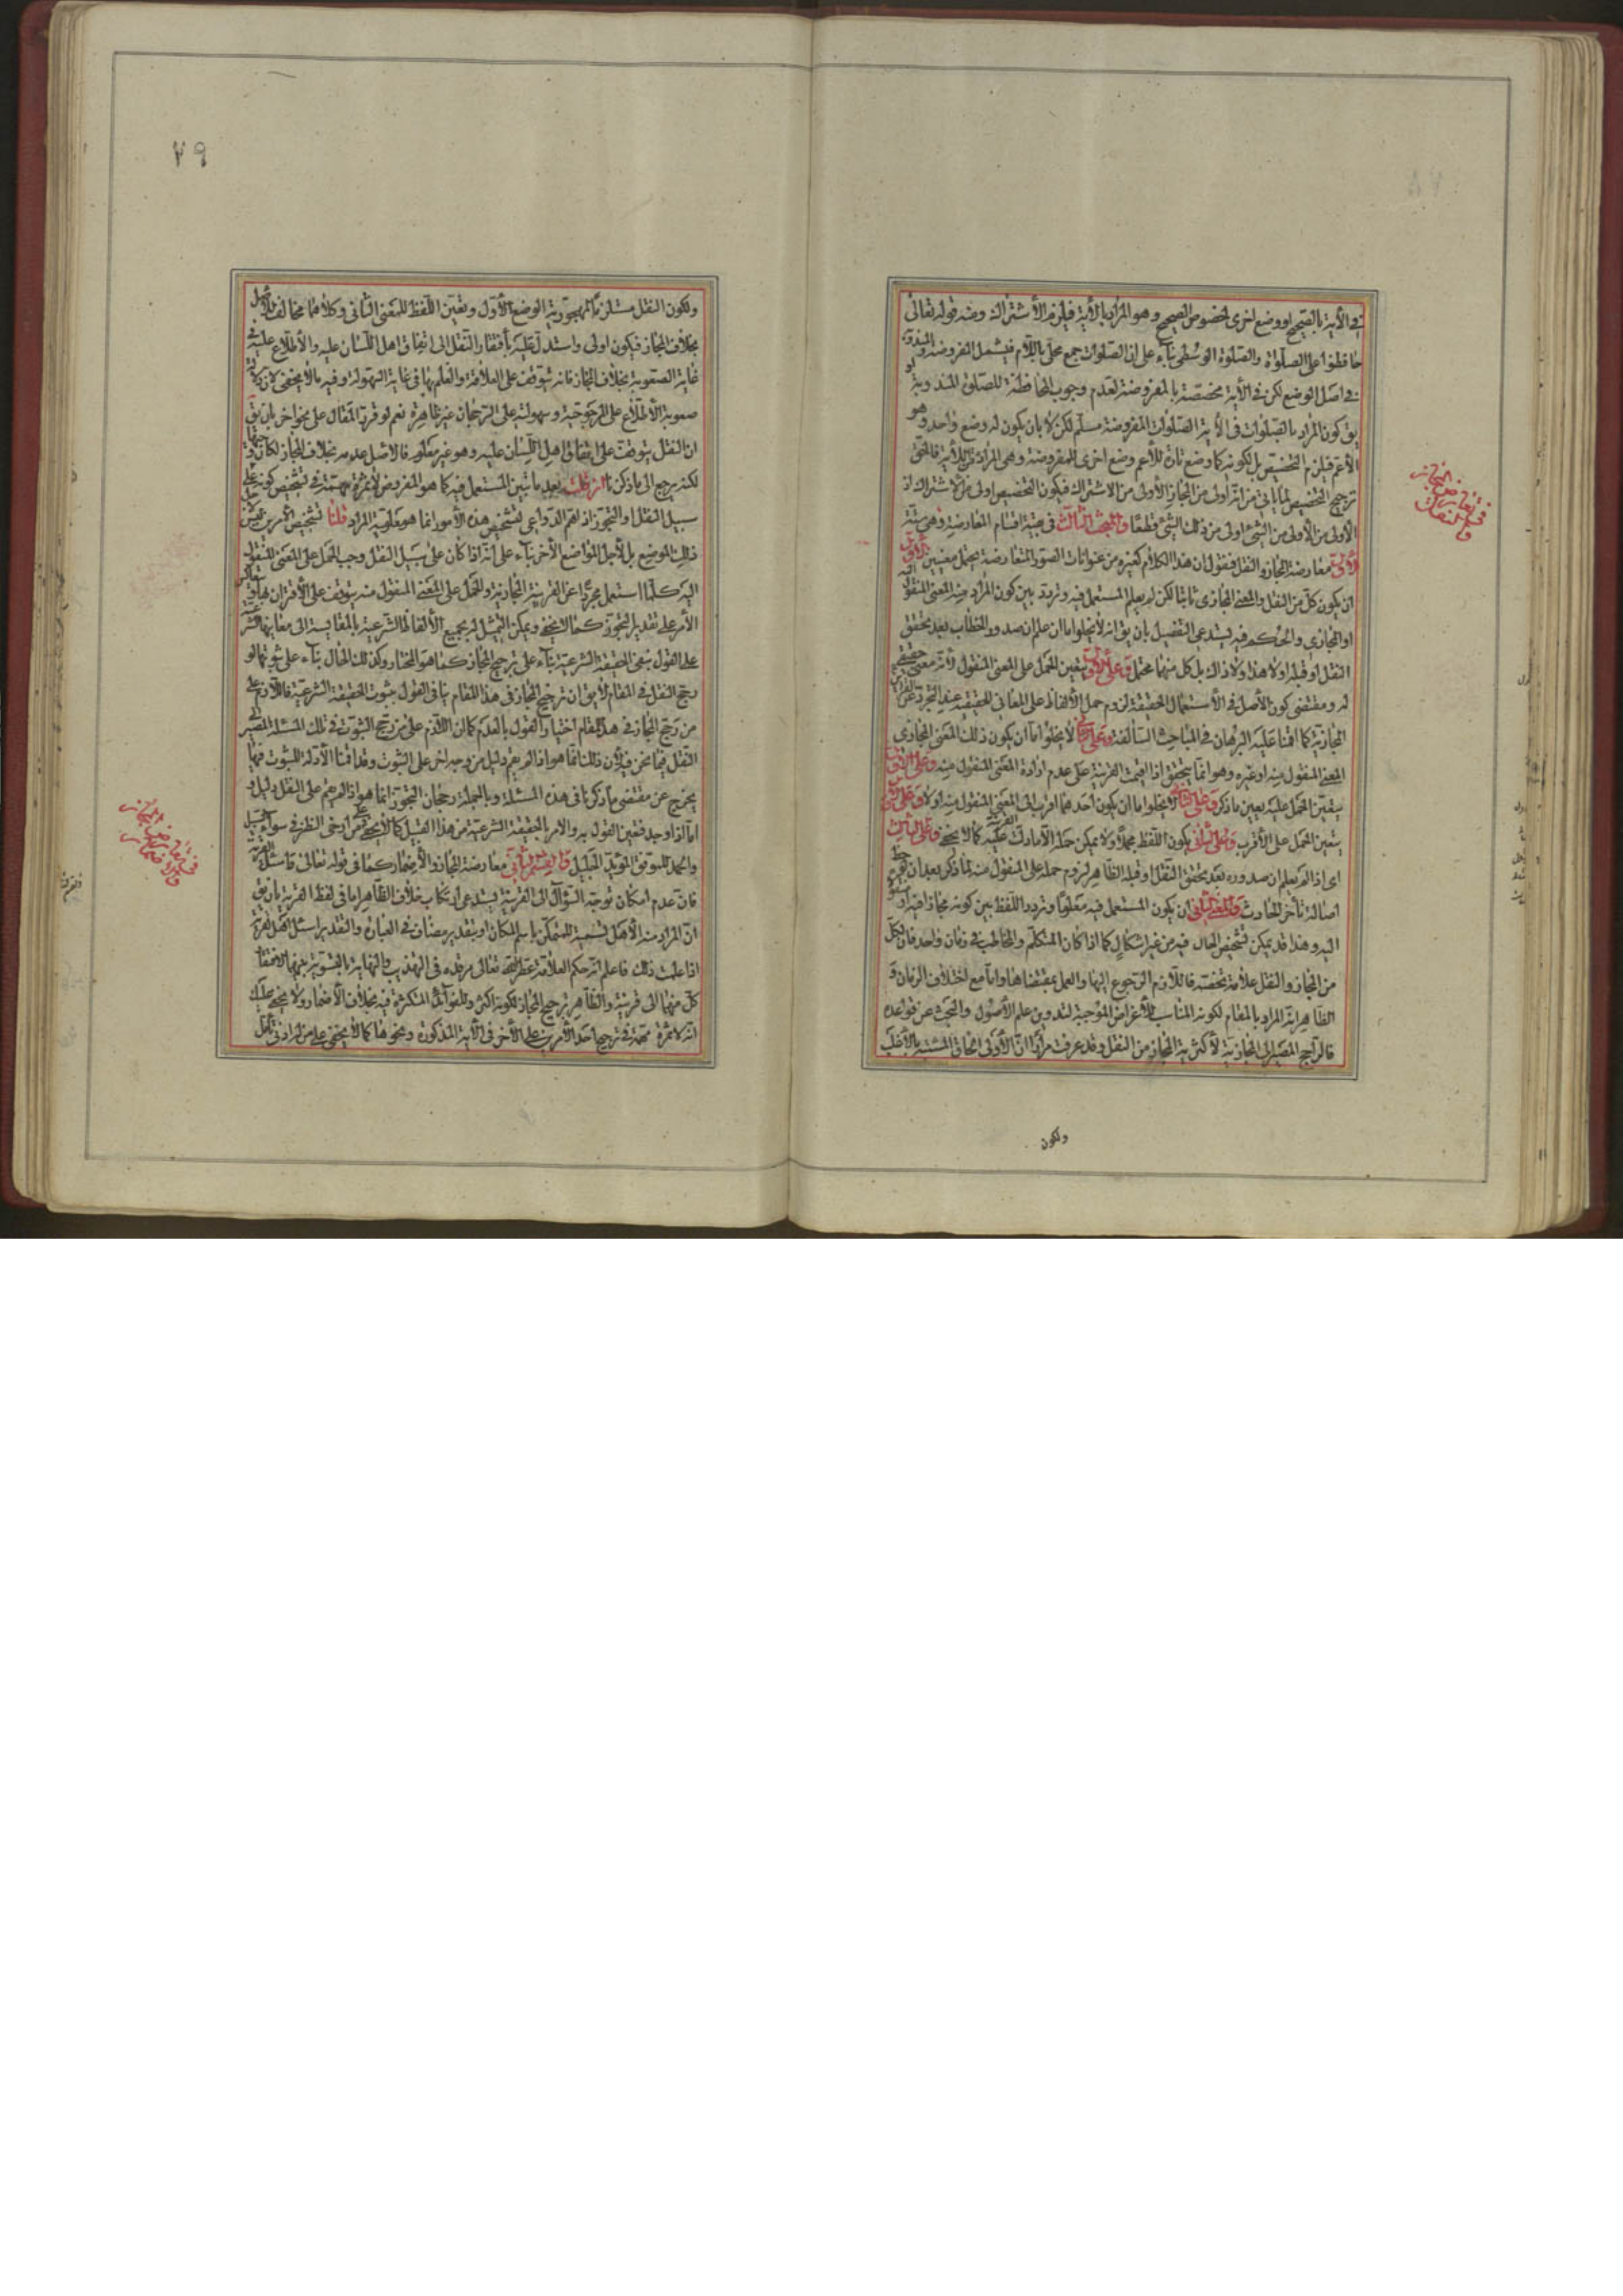 في الآية بالصحيح او وضع اخرى لخصوص الصحيح وهو المراد بالآية فيلزم الاشتراك ومنه قوله تعالى
حافظوا على الصلواة والصلوة الوسطى بناء على ان الصلوات جمع محلى باللام فيشمل المفروضة والمندوبة
في اصل الوضع لكن في الآية مخصصة بالمفروضة لعدم وجوب المحافظة للصلوة المندوبة او
يق كون المراد بالصلوات في الآية الصلوات المفروضة مسلم لكن لا بان يكون له وضع واحد وهو
الاعم فيلزم التخصيص بل لكونه كما وضع تارة للأعم وضع اخرى للمفروضة وهي المرادة بالآية فالحق
ترجيح التخصيص لما ياتي من انه اولى من المجاز الأولى من الاشتراك فيكون التخصيص اولى من الاشتراك اذ
الأولى من الأولى من الشئ اولى من ذلك الشئ قطعا والمبحث الثالث في بقية اقسام المعارضة وهي ستة
الأول معارضة المجاز والنقل فنقول ان هذا الكلام كغيره من عنوانات الصور المتعارضة يحتمل معنيين الأول
ان يكون كل من النقل والمعنى المجازي ثابتا لكن لم يعلم المستعمل فيه وتردد بين كون المراد منه المعنى المنقول اليه
او المجازي والحكم فيه يستدعي التفصيل بان يق انه لا يخلو اما ان علم ان صدور الخطاب بعد تحقق
النقل او قبله او لا هذا ولا ذاك بل كل منهما محتمل وعلى الأول يتعين الحمل على المعنى المنقول لأنه معنى حقيقي
له ومقتضى كون الأصل في الأستعمال الحقيقة لزوم حمل الألفاظ على المعاني الحقيقية عند التجرد عن القرائن
المجازية كما اقمنا عليه البرهان في المباحث السالفة وعلى الثاني لا يخلو اما ان يكون ذلك المعنى المجازي
المعنى المنقول منه او غيره وهو انما يتحقق اذا اقيمت القرينة على عدم ارادة المعنى المنقول منه وعلى الأول
يتعين الحمل عليه بعين ما ذكر وعلى الثاني لا يخلو اما ان يكون احدهما اقرب الى المعنى المنقول منه اولا وعلى الأول
يتعين الحمل على الأقرب وعلى الثاني يكون اللفظ مجملا ولا يمكن حمله الا بمادلت عليه القرينة كما لا يخفى وعلى الثالث
اي اذا لم يعلم ان صدوره بعد تحقق النقل او قبله الظاهر لزوم حمله على المنقول منه لما ذكر بعد ان
اصالة تأخر الحادث والمعنى الثاني ان يكون المستعمل فيه معلوما وتردد اللفظ بين كونه مجازا فيه او منقولا
اليه وهذا قد يمكن تشخيص الحال فيه من غير اشكال كما اذا كان المتكلم والمخاطب في زمان واحد فان لكل
من المجاز والنقل علامة تخصه فاللازم الرجوع اليها والعمل بمقتضاها واما مع اختلاف الزمان و
الظاهر انه المراد بالمقام لكونه المناسب للأغراض الموجبة لتدوين علم الأصول والبحث عن قواعده
فالراجح المصير الى المجازية لأكثرية المجاز من النقل وقد عرفت مرارا ان الأولى الحاق المشتبه بالأغلب
ولكون
في تعارض المجاز
والنقل
٧٩
ولكون النقل مستلزما لمهجورية الوضع الأول وتعين اللفظ للمعنى الثاني وكلاهما مخالف للأصل
بخلاف المجاز فيكون اولى واستدل عليه بأفتقار النقل الى اتفاق اهل اللسان عليه والأطلاع عليه في
غاية الصعوبة بخلاف المجاز فانه يتوقف على العلاقة والعلم بها في غاية السهولة وفيه ما لا يخفى لان
صعوبة الأطلاع على المرجوحية وسهولته على الرجحان غير ظاهرة نعم لو قرر المقال على نحو اخر بان يق
ان النقل يتوقف على اتفاق اهل اللسان عليه وهو غير معلوم فالاصل عدمه بخلاف المجاز لكان
لكنه يرجع الى ما ذكرنا ان قلت بعد ما تبين المستعمل فيه كما هو المفروض لا ثمرة مهمة في تشخيص كونه على
سبيل النقل او التجوز اذ اهم الدواعي لتشخيص هذه الأمور انما هو معلومية المراد قلنا تشخيص الأمرين ليس
ذلك الموضع بل لأجل المواضع الأخر بناء على انه اذا كان على سبيل النقل وجب الحمل على المعنى المنقول
اليه كلما استعمل مجردا عن القرينة المجازية والحمل على المعنى المنقول منه يتوقف على الأقتران بها
الأمر على تقدير التجوز كما لا يخفى ويمكن التمثيل له بجميع الألفاظ الشرعية بالمقايسة الى معانيها
على القول بنفي الحقيقة الشرعية بناء على ترجيح المجاز كما هو المختار وكذلك الحال بناء على ثبوتها لو
رجح النقل في المقام لا يق ان ترجيح المجاز في هذا المقام ينافي القول بثبوت الحقيقة الشرعية فاللازم على
من رجح المجاز في هذا المقام اختيار القول بالعدم كما ان اللازم على من رجح الثبوت في تلك المسئلة المصير الى
النقل فيما نحن فيه لأن ذلك انما هو اذا لم يقم دليل من وجه اخر على الثبوت وقد اقمنا الأدلة للثبوت فيها
يخرج عن مقتضى ما ذكرنا في هذه المسئلة وبالجملة رجحان التجوز انما هو اذا لم يقم على النقل دليل و
اما اذا وجد فتعين القول به والامر بالحقيقة الشرعية من هذا القبيل كما لا يخفى على من ارخى النظر في سواء السبيل
والحمد للموفق الموئل الجليل والقسم الثاني معارضة المجاز والأضمار كما في قوله تعالى واسئل القرية
فان عدم امكان توجه السؤال الى القرية يستدعي ارتكاب خلاف الظاهر اما في لفظ القرية بان يق
ان المراد منه الأهل تسمية للمتمكن باسم المكان او بتقدير مضاف في العبارة والتقدير اسئل اهل القرية
اذا علمت ذلك فاعلم انه حكم العلامة عطر الله تعالى مرقده في التهذيب والنهاية بالتسوية بينهما لافتقار
كل منهما الى قرينة والظاهر ترجيح المجاز لكونه اكثر وللفوائد المتكثرة فيه بخلاف الأضمار ولا يخفى عليك
انه لا ثمرة مهمة في ترجيح احد الأمرين على الأخر في الآية المذكورة ونحوها كما لا يخفى على من له ادنى تأمل
في تعارض المجاز
والأضمار